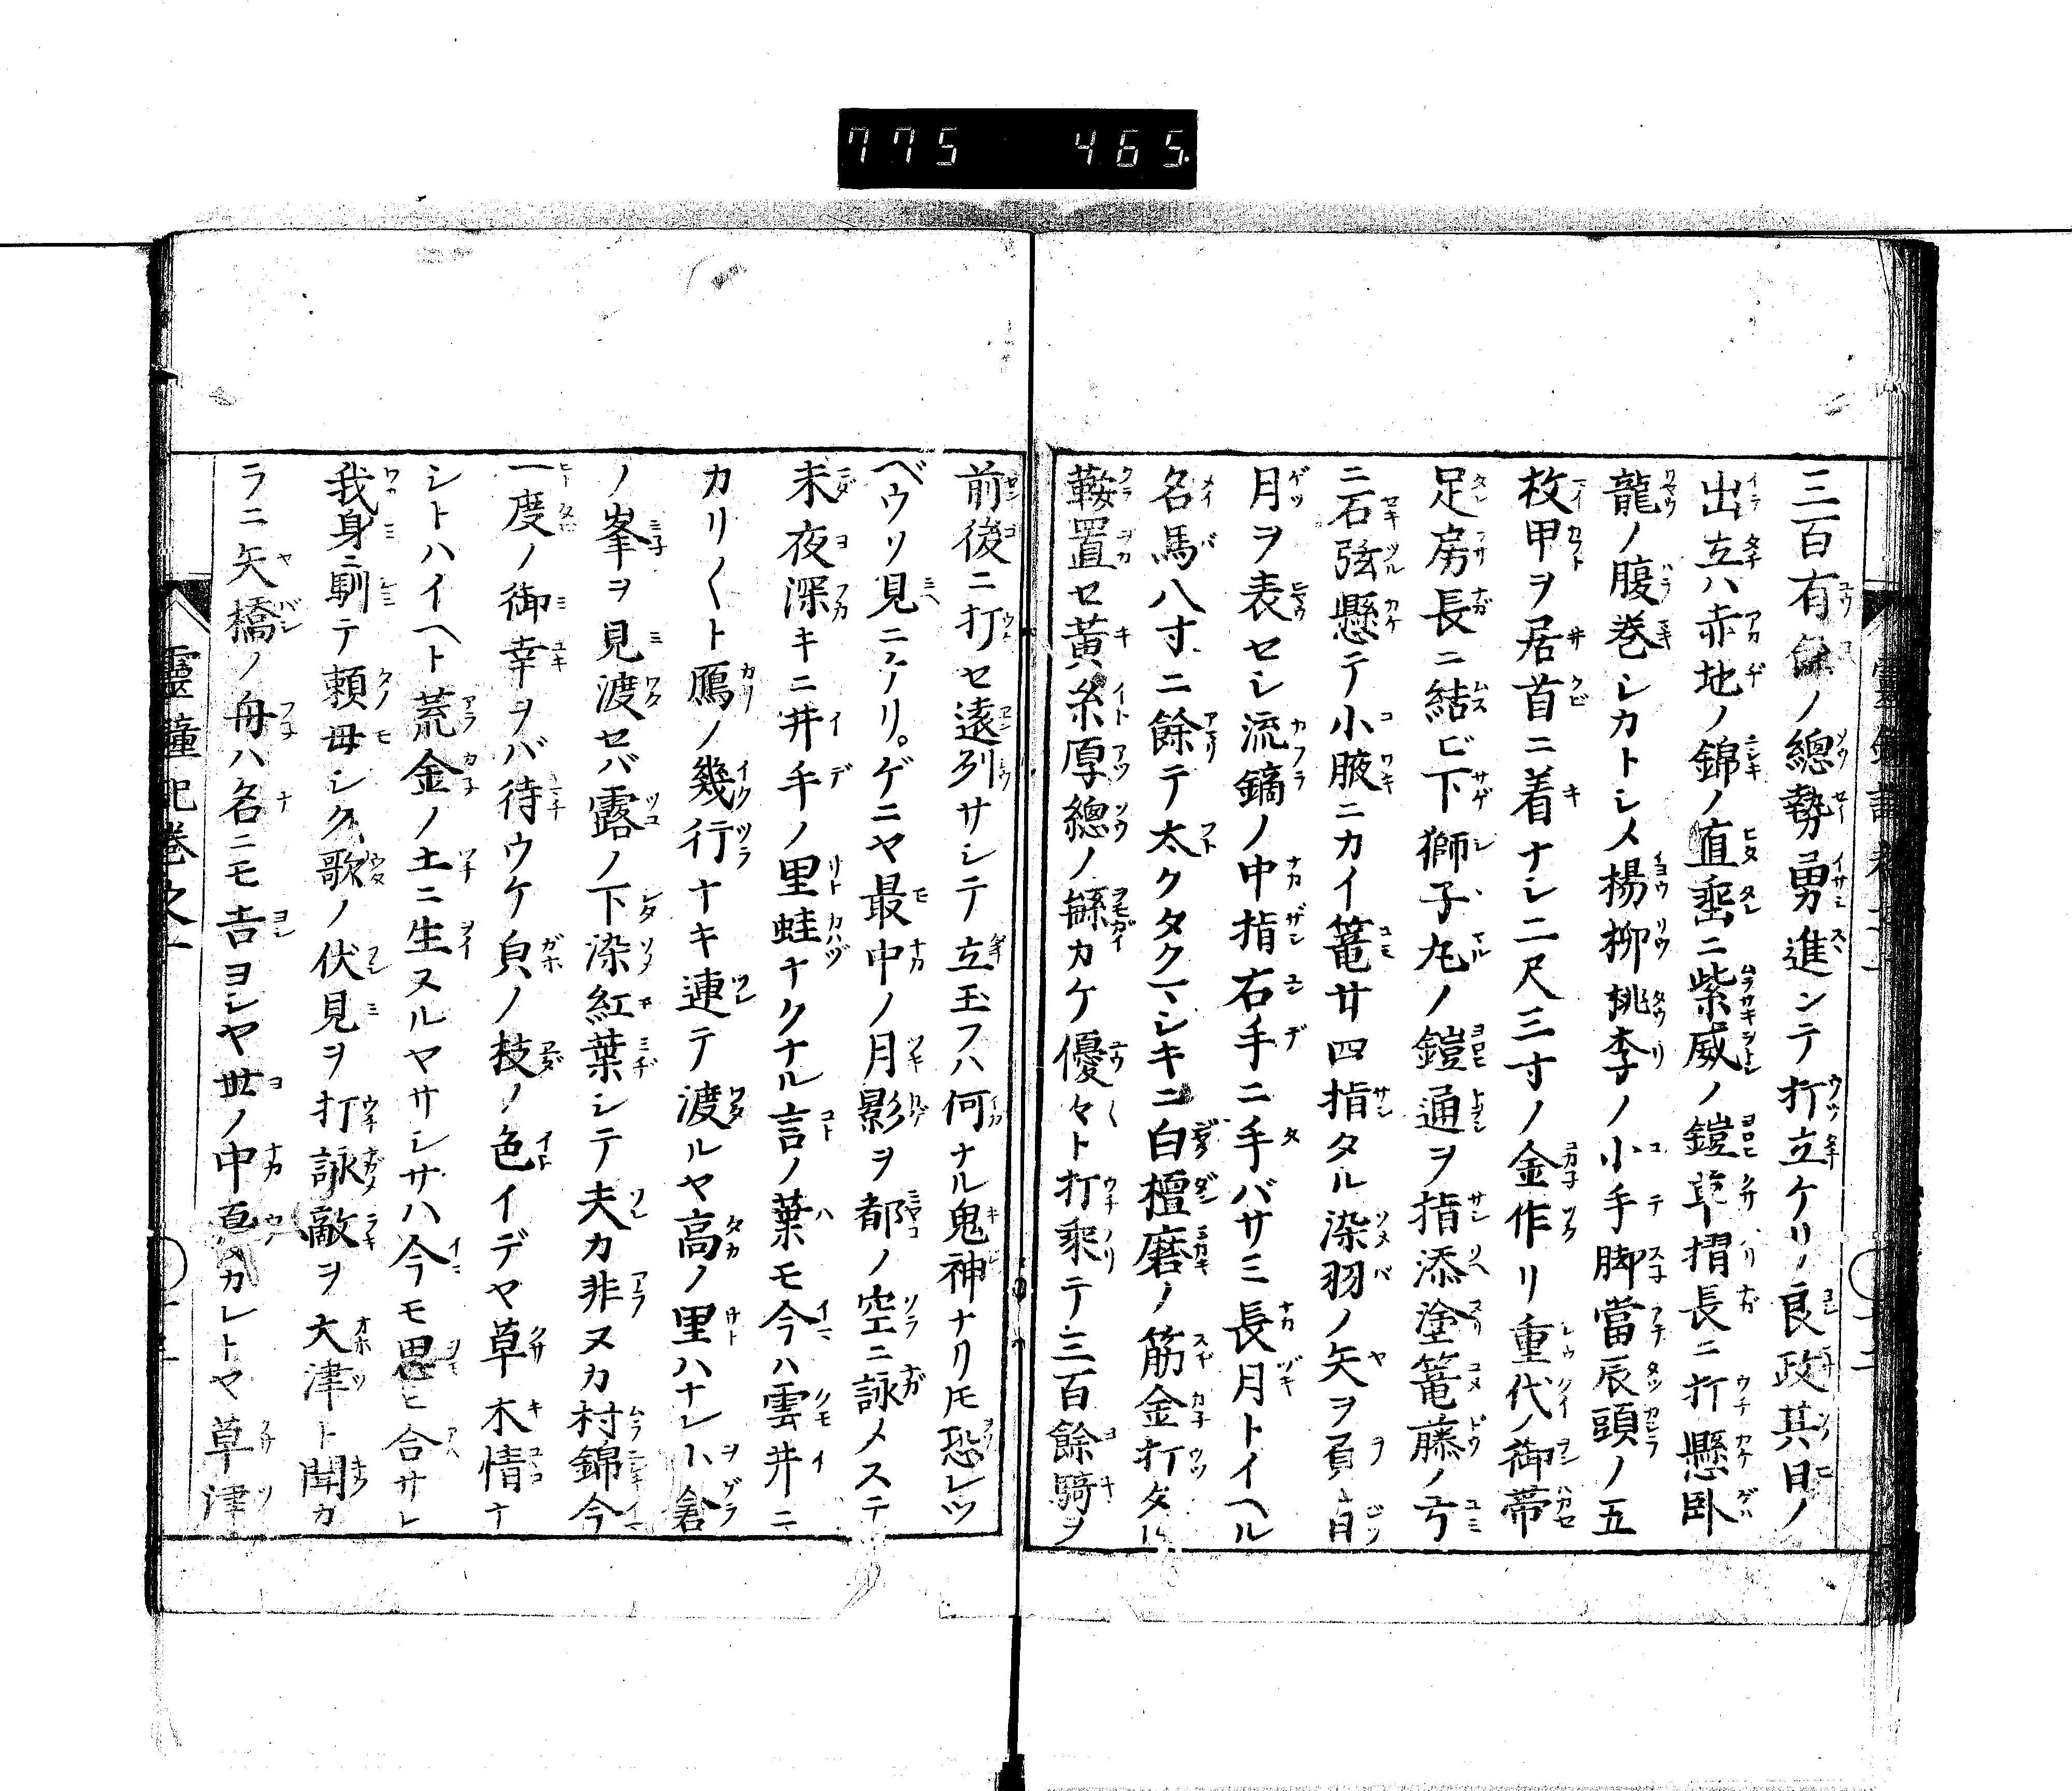 775 465
三百有餘ノ總勢勇進ンテ打立ケリ良政其日ノ
出立ハ赤地ノ錦ノ直垂ニ紫威ノ鎧草摺長ニ打懸臥
龍ノ腹巻シカトシメ揚柳桃李ノ小手脚當辰頭ノ五
枚甲ヲ居首ニ着ナシ二尺三寸ノ金作リ重代ノ御帯
足房長ニ結ビ下獅子丸ノ鎧通ヲ指添塗篭藤ノ弓
ニ石弦懸テ小腋ニカイ篭廿四指タル染羽ノ矢ヲ負
月ヲ表セシ流鏑ノ中指右手ニ手バサミ長月トイヘル
名馬八寸ニ餘テ太クタクマシキニ白檀磨ノ筋金打タル
鞍置セ黄糸厚總ノ カケ優々ト打乗テ三百餘騎ヲ
前後ニ打セ遠列サシテ立玉フハ何ナル鬼神ナリ𪜈恐レツ
ベウリ見ニケリ。ゲニヤ最中ノ月影ヲ都ノ空ニ詠メステ
未夜深キニ井手ノ里蛙ナクナル言ノ葉モ今ハ雲井ニ
カリ〱ト鴈ノ幾行ナキ連テ渡ルヤ高ノ里ハナレ小倉
ノ峯ヲ見渡セバ露ノ下染紅葉シテ夫カ非ヌカ村錦今
一度ノ御幸ヲバ待ウケ皃ノ枝ノ色イデヤ草木情ナ
シトハイヘト荒金ノ土ニ生ヌルヤサシサハ今モ思ヒ合サレ
我身ニ馴テ頼母シク歌ノ伏見ヲ打詠敵ヲ大津ト聞カ
ラニ矢橋ノ舟ハ名ニモ吉ヨシヤ世ノ中 カレトヤ草津
靈 記巻之十